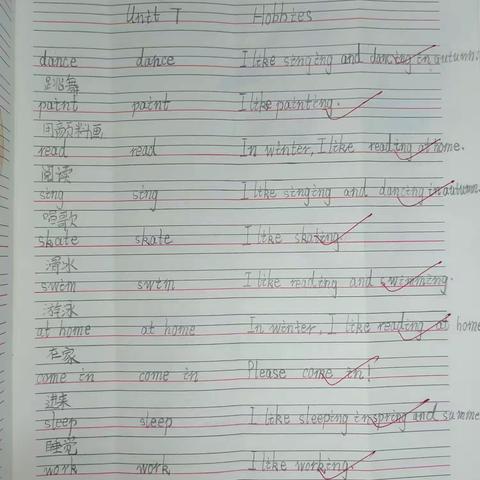 Unit 7 Hobbies
dance dance I like singing and dancing in autumn.
跳舞
paint paint I like painting.
用颜料画
read read In winter, I like reading at home.
阅读
sing sing I like singing and dancing in autumn.
唱歌
skate skate I like skating.
滑冰
swim swim I like reading and swimming.
游泳
at home at home In winter, I like reading at home
在家
come in come in Please come in!
进来
sleep sleep I like sleeping in spring and summe
睡觉
work work I like working.